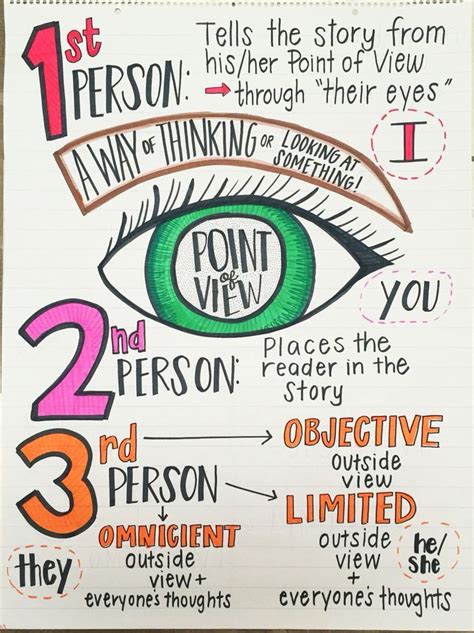 1st PERSON:
Tells the story from
his/her Point of View
→ through "their eyes"
I
A WAY OF THINKING OR LOOKING AT
SOMETHING!
POINT
of
VIEW
YOU
2nd PERSON:
Places the
reader in the
Story
3rd PERSON
→ OBJECTIVE
outside
view
→ LIMITED
outside
view
+
everyone's thoughts
he/
she
↓
OMNICIENT
outside
view +
everyone's thoughts
they